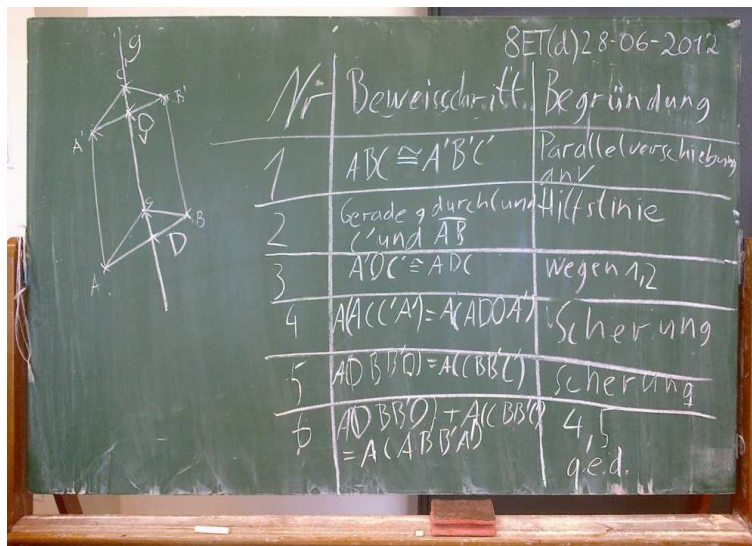 8ET(d) 28-06-2012
g
C'
B'
A'
D'
C
B
D
A
Nr Beweisschritt Begründung
1 ABC ≅ A'B'C' Parallelverschiebung
an v
2 Gerade g durch C und Hilfslinie
C' und AB
3 A'D'C' ≅ ADC wegen 1,2
4 A(ACC'A') = A(ADD'A') Scherung
5 A(DBB'D') = A(CBB'C') Scherung
6 A(DBB'D') + A(CBB'C') 4,5
= A(ABB'A') q.e.d.